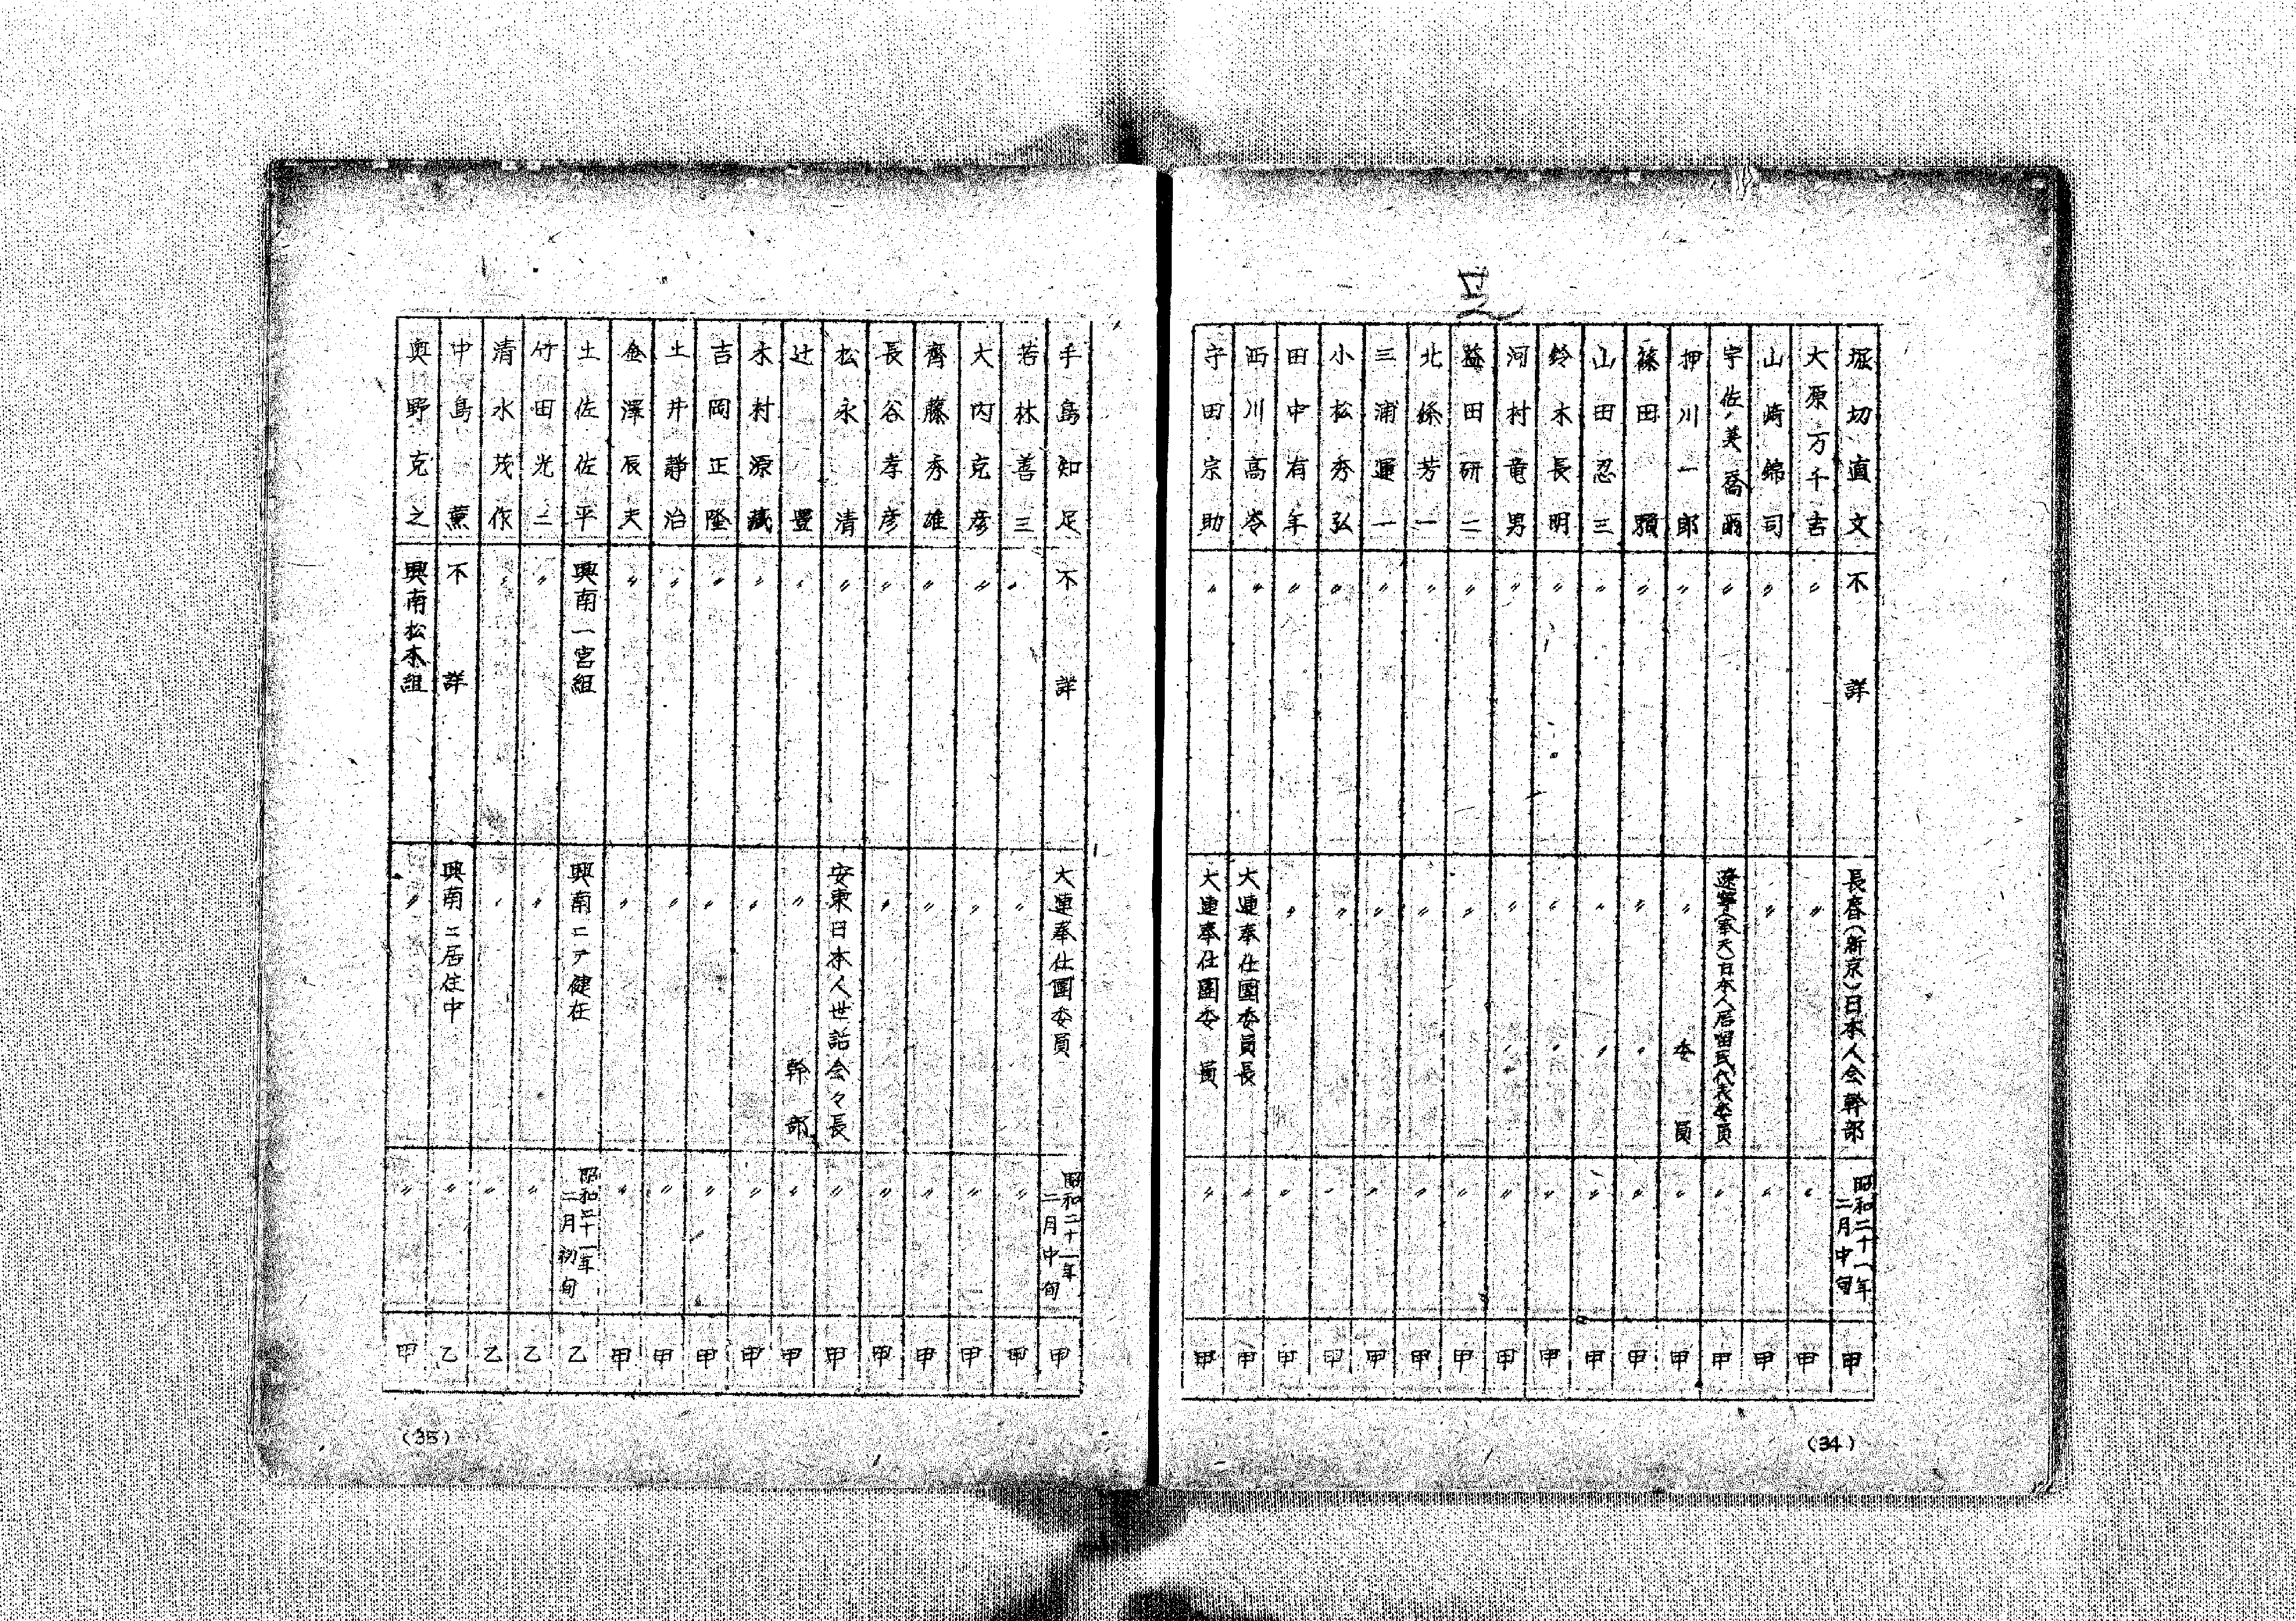 堀切直文 不詳 長春(新京)日本人会幹部 昭和二十一年二月中旬 甲
大原万千吉 〃 〃 〃 甲
山崎錦司 〃 〃 〃 甲
宇佐美喬爾 〃 遼寧(奉天)日本人居留民代表委員 〃 甲
押川一郎 〃 〃 委員 〃 甲
篠田 〃 〃 〃 〃 甲
山田忍三 〃 〃 〃 〃 甲
鈴木長明 〃 〃 〃 〃 甲
河村竜男 〃 〃 〃 〃 甲
益田研二 〃 〃 〃 甲
北條芳一 〃 〃 〃 甲
三浦運一 〃 〃 〃 甲
小松秀弘 〃 〃 〃 甲
田中有年 〃 〃 〃 甲
西川高岺 〃 大連奉仕團委員長 〃 甲
守田宗助 〃 大連奉仕團委員 〃 甲
(34)
手島知足 不詳 大連奉仕團委員 昭和二十一年二月中旬 甲
若林善三 〃 〃 〃 甲
大内克彦 〃 〃 〃 甲
齊藤秀雄 〃 〃 〃 甲
長谷孝彦 〃 〃 〃 甲
松永清 〃 安東日本人世話会々長 〃 甲
辻豊 〃 〃 幹部 〃 甲
木村源藏 〃 〃 〃 甲
吉岡正隆 〃 〃 〃 甲
土井静治 〃 〃 〃 甲
金澤辰夫 〃 〃 〃 甲
土佐佐平 興南一宮組 興南ニテ健在 昭和二十一年二月初旬 乙
竹田光二 〃 〃 〃 乙
清水茂作 〃 〃 〃 乙
中島薫 不詳 興南ニ居住中 〃 乙
奥野克之 興南松本組 〃 〃 甲
(35)